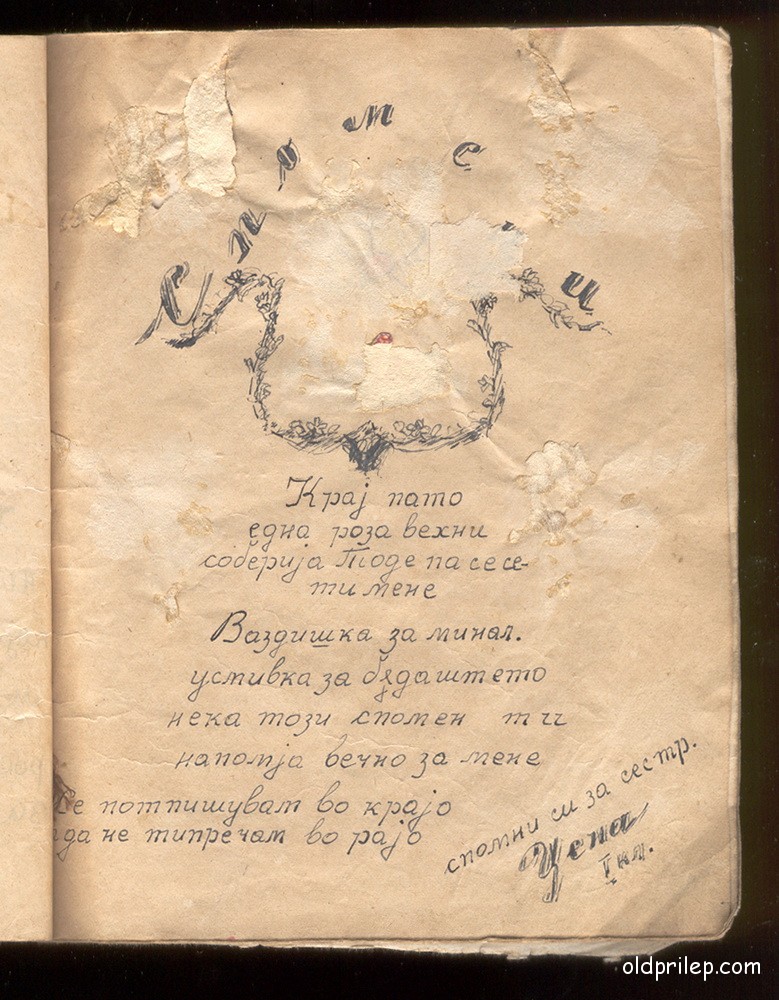 Спомени
Крај пато
една роза вехни
соберија Тоде па сесе-
ти мене
Ваздишка за минал.
усмивка за бѫдаштето
нека този спомен ти
напомја вечно за мене
Се потпишувам во крајо
да не ти пречам во рајо
спомни си за сестр.
Цена
I кл.
oldprilep.com